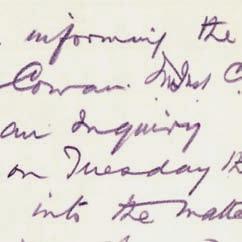 informing the
Cowan.
an Inquiry
on Tuesday
into the matte